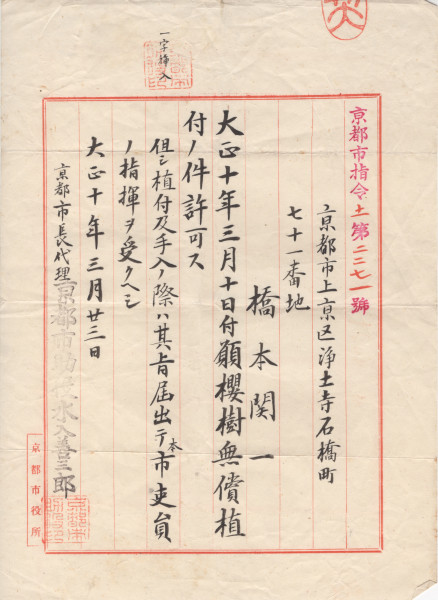 一字挿入
京都市指令土第二三七一號
京都市上京区浄土寺石橋町
七十一番地
橋本関一
大正十年三月十日付願櫻樹無償植
付ノ件許可ス
但シ植付及手入ノ際ハ其旨届出テ本市吏員
ノ指揮ヲ受クヘシ
大正十年三月廿三日
京都市長代理京都市助役永田善三郎
京都市役所